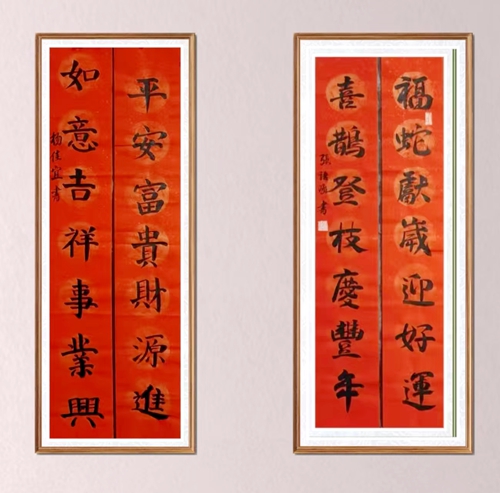 平安富貴財源進
如意吉祥事業興
福蛇獻歲迎好運
喜鵲登枝慶豐年